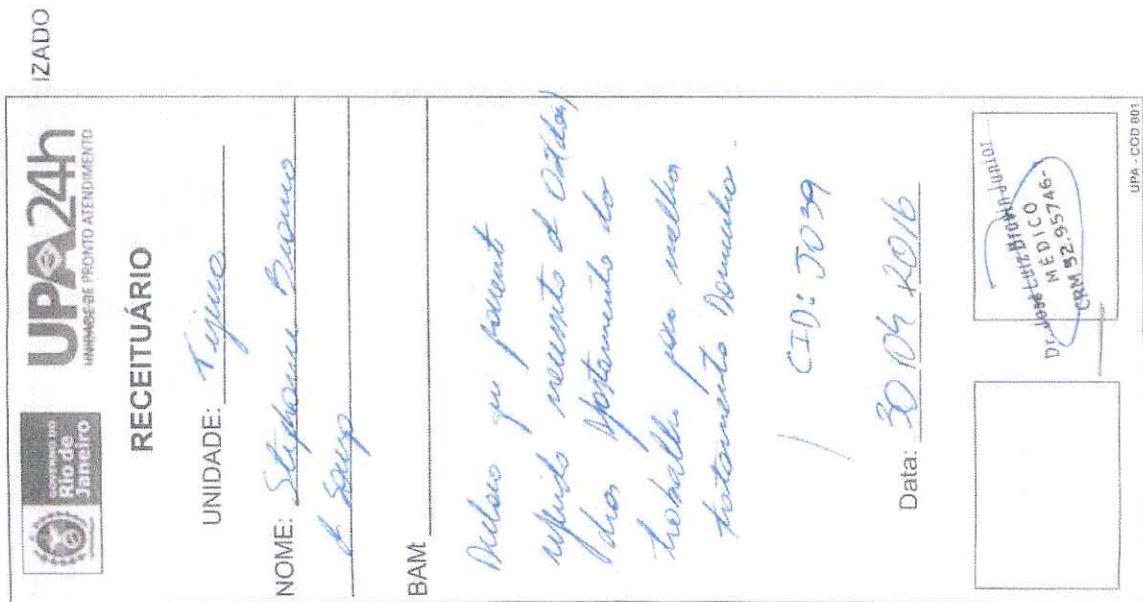 IZADO
GOVERNO DO
Rio de
Janeiro
UPA24h
UNIDADE DE PRONTO ATENDIMENTO
RECEITUÁRIO
UNIDADE: Tijuca
NOME: Stephanie
de Souza
BAM:
Declaro que paciente
referida necessita d 02 (dois)
dias afastamento do
trabalho para melhor
tratamento Domiciliar.
CID: J039
Data: 30/04/2016
Dr. José Luiz Junior
MÉDICO
CRM 52.95746-
UPA - COD 001